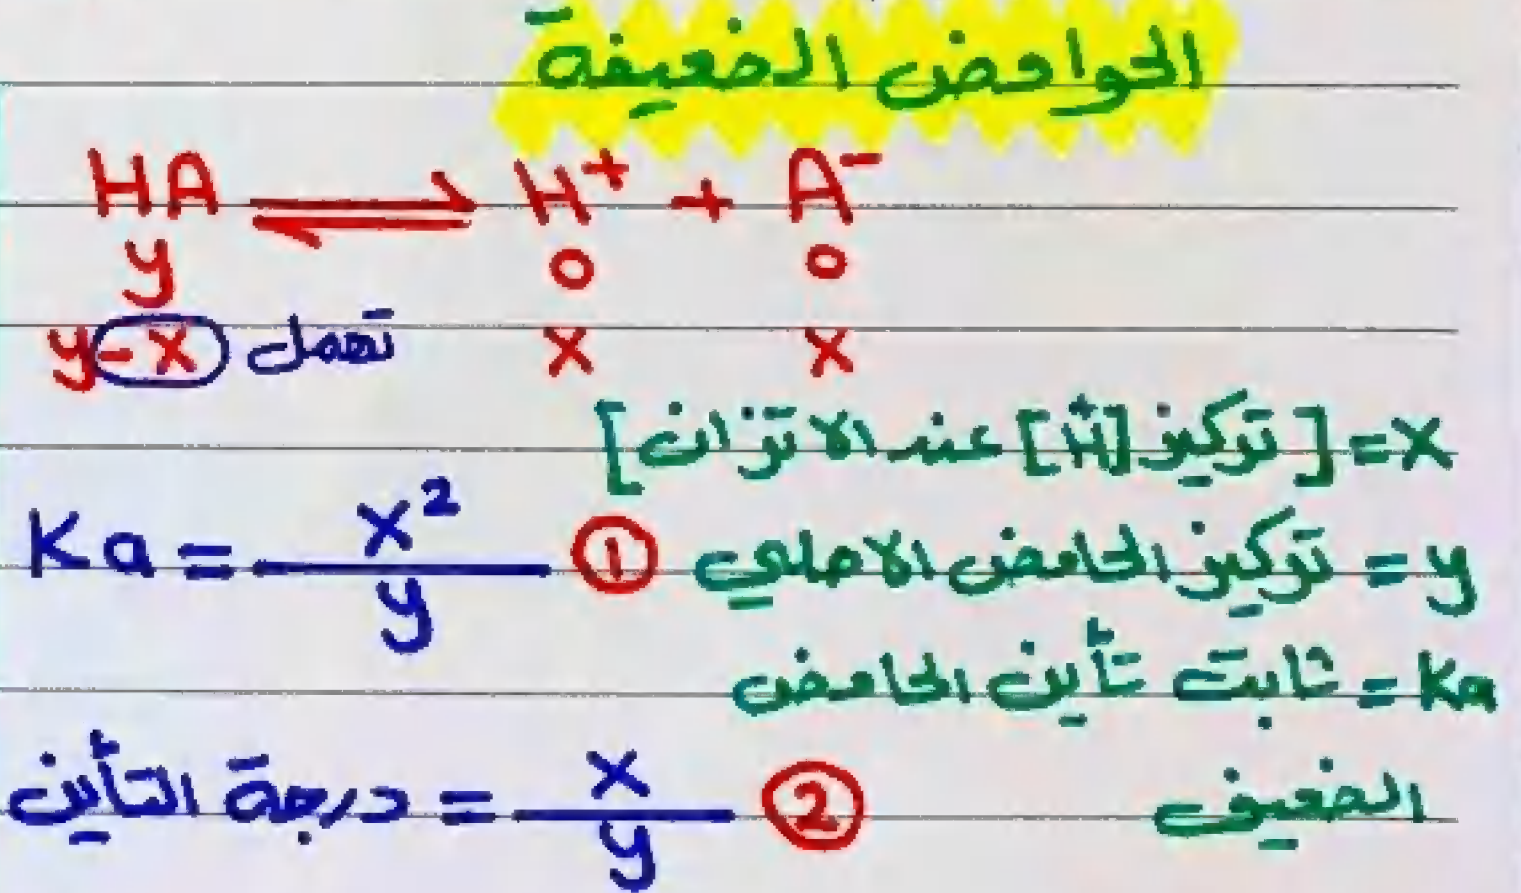 الحوامض الضعيفة
HA ⇌ H⁺ + A⁻
y 0 0
y-x تهمل x x
x = [تركيز [H⁺] عند الاتزان]
Ka = x²/y ① y = تركيز الحامض الاصلي
Ka = ثابت تأين الحامض
الضعيف
درجة التأين = x/y ②